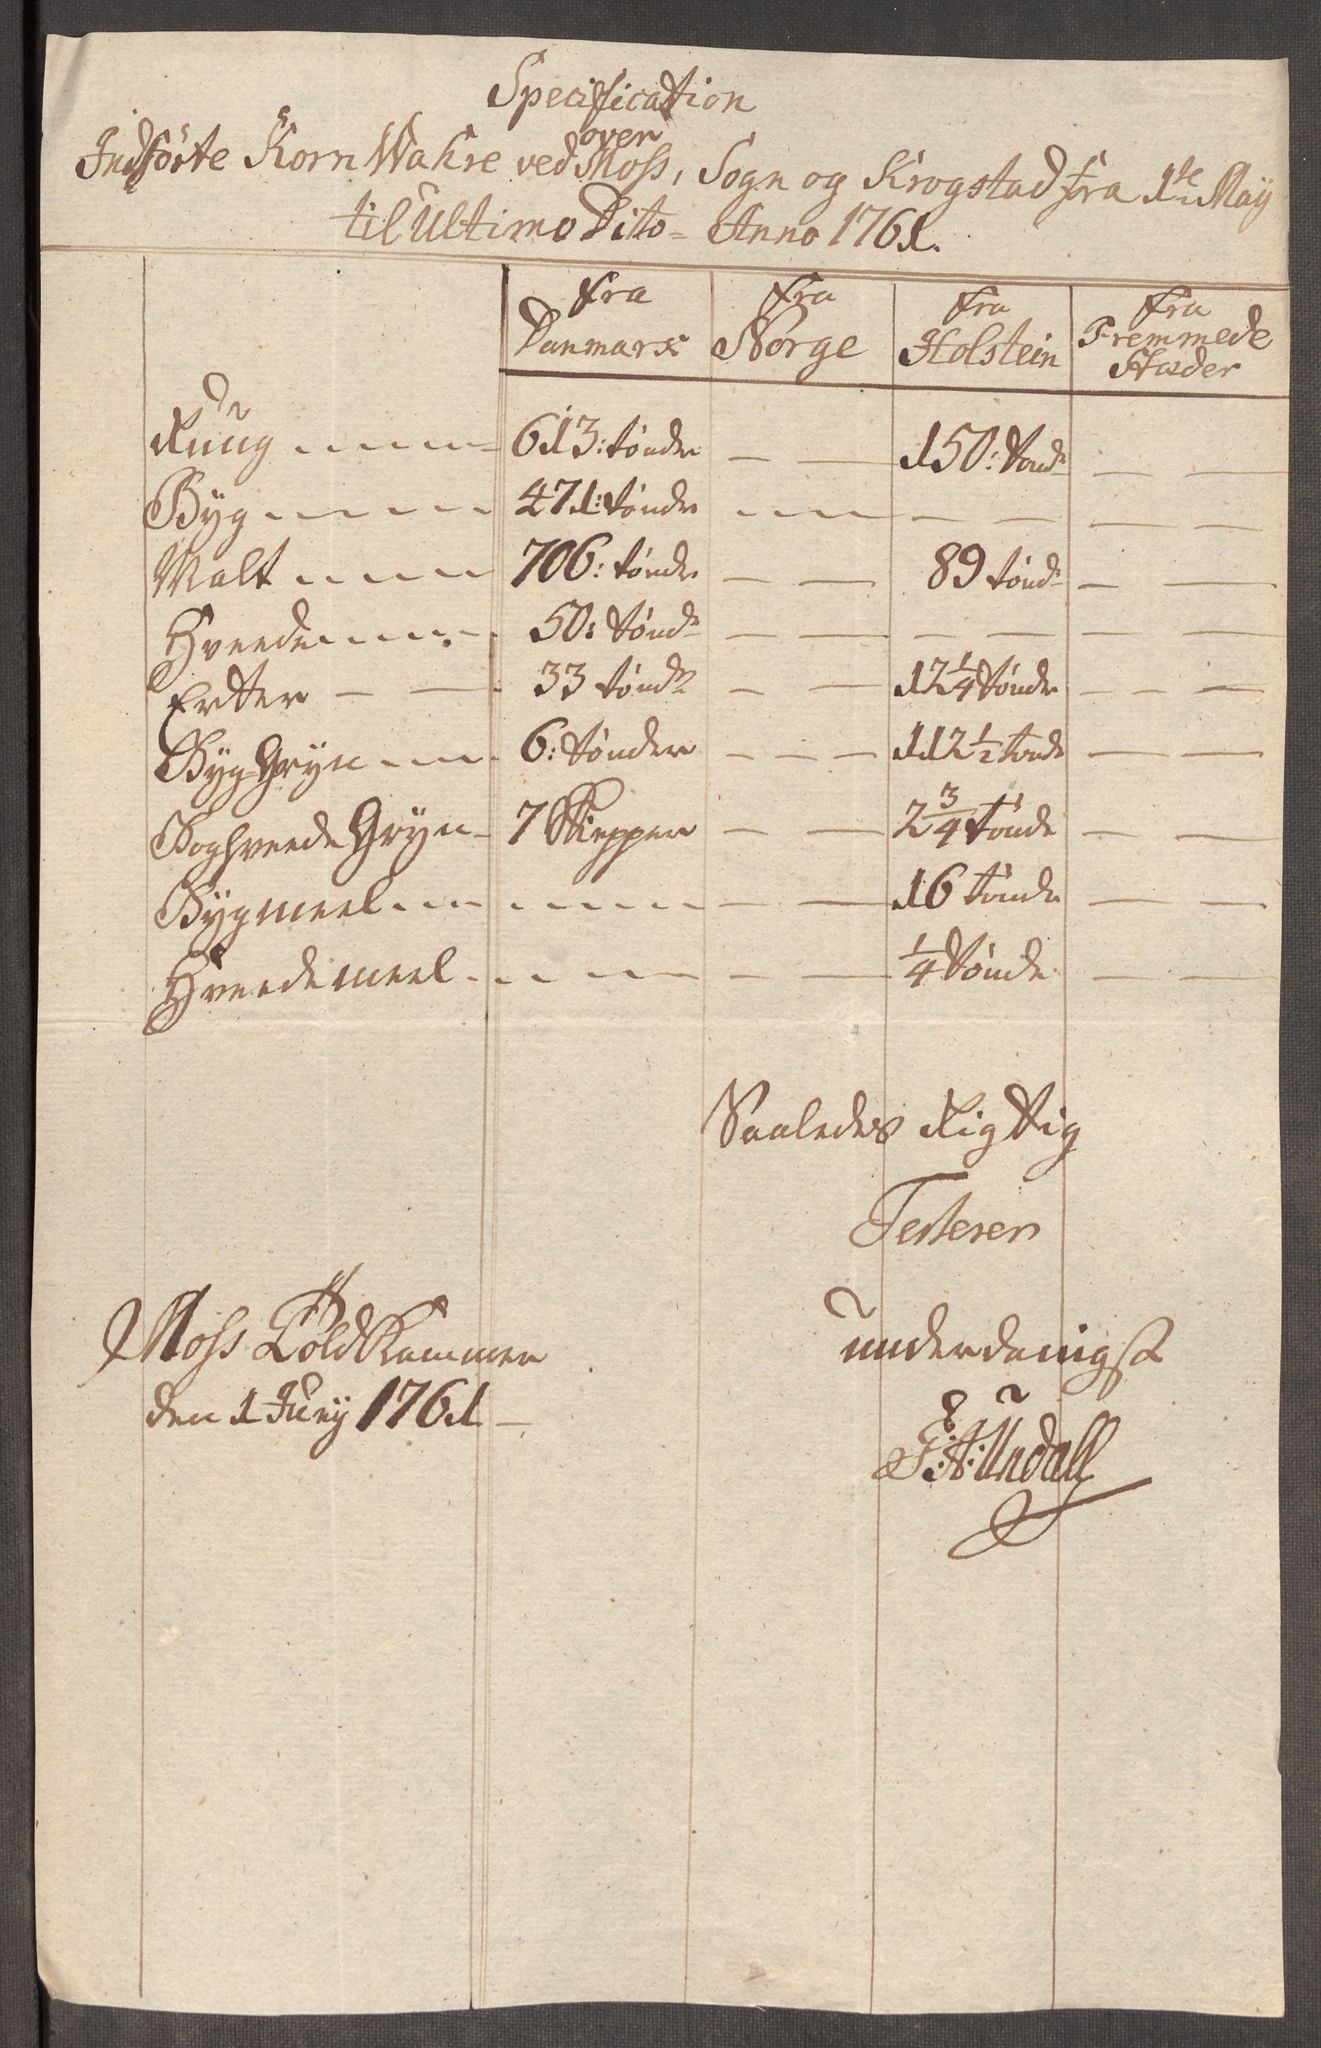 Specification
over
Indførte Korn Wahre ved Moss, Sogn og Krogstad fra 1te May
til Ultimo Dito - Anno 1761.
fra Danmark fra Norge fra Holstein fra Fremmede Stæder
Rüüg 613: tønder — 150: tønd.
Byg 471: tønder — — —
Malt 706: tønder — 89 tønd. —
Hveede 50: tønd. — — —
Erter 33 tønd. — 12 1/4 tønder —
Byg Gryn 6: tønder — 112 1/2 tønde —
Boghveede Gryn 7 Skiepper — 2 3/4 tønde —
Bygmeel — — 16 tønde —
Hveedemeel — — 1/4 tønde —
Saaledes Rigtig
Testerer
Moss Told Kammer underdanigst
den 1 Juny 1761 Undall